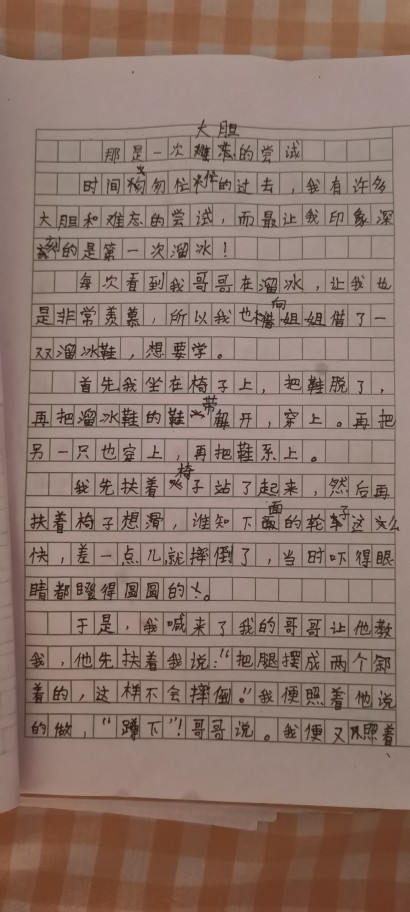 大胆
那是一次难忘的尝试
时间匆匆忙忙的过去，我有许多
大胆和难忘的尝试，而最让我印象深
刻的是第一次溜冰！
每次看到我哥哥在溜冰，让我也
是非常羡慕，所以我也向姐姐借了一
双溜冰鞋，想要学。
首先我坐在椅子上，把鞋脱了，
再把溜冰鞋的鞋带解开，穿上。再把
另一只也穿上，再把鞋系上。
我先扶着椅子站了起来，然后再
扶着椅子想滑，谁知下面的轮子这么
快，差一点儿就摔倒了，当时吓得眼
睛都瞪得圆圆的。
于是，我喊来了我的哥哥让他教
我，他先扶着我说：“把腿摆成两个
着的，这样不会摔倒。”我便照着他说
的做，“蹲下”！哥哥说。我便又照着